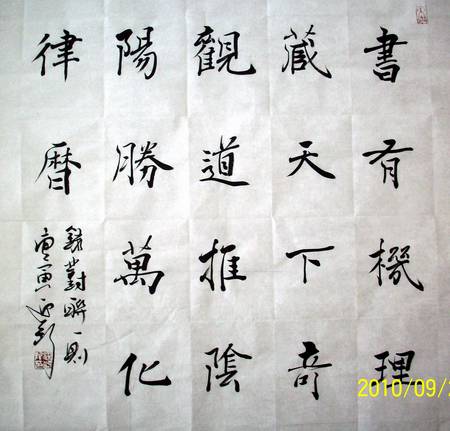 書有機理
藏天下奇
觀道推陰
陽勝萬化
律曆
錄對聯一則
庚寅
2010/09/2